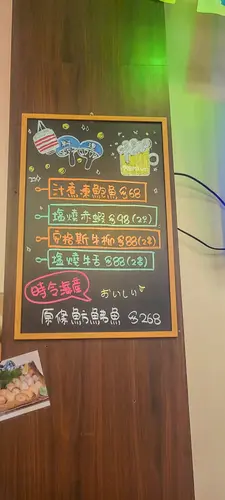 汁煮凍鮑魚 $68
塩燒赤蝦 $98(2隻)
安格斯牛柳 $88(2串)
塩燒牛舌 $88(2串)
時令海產
おいしい
原條魴鱅魚 $268